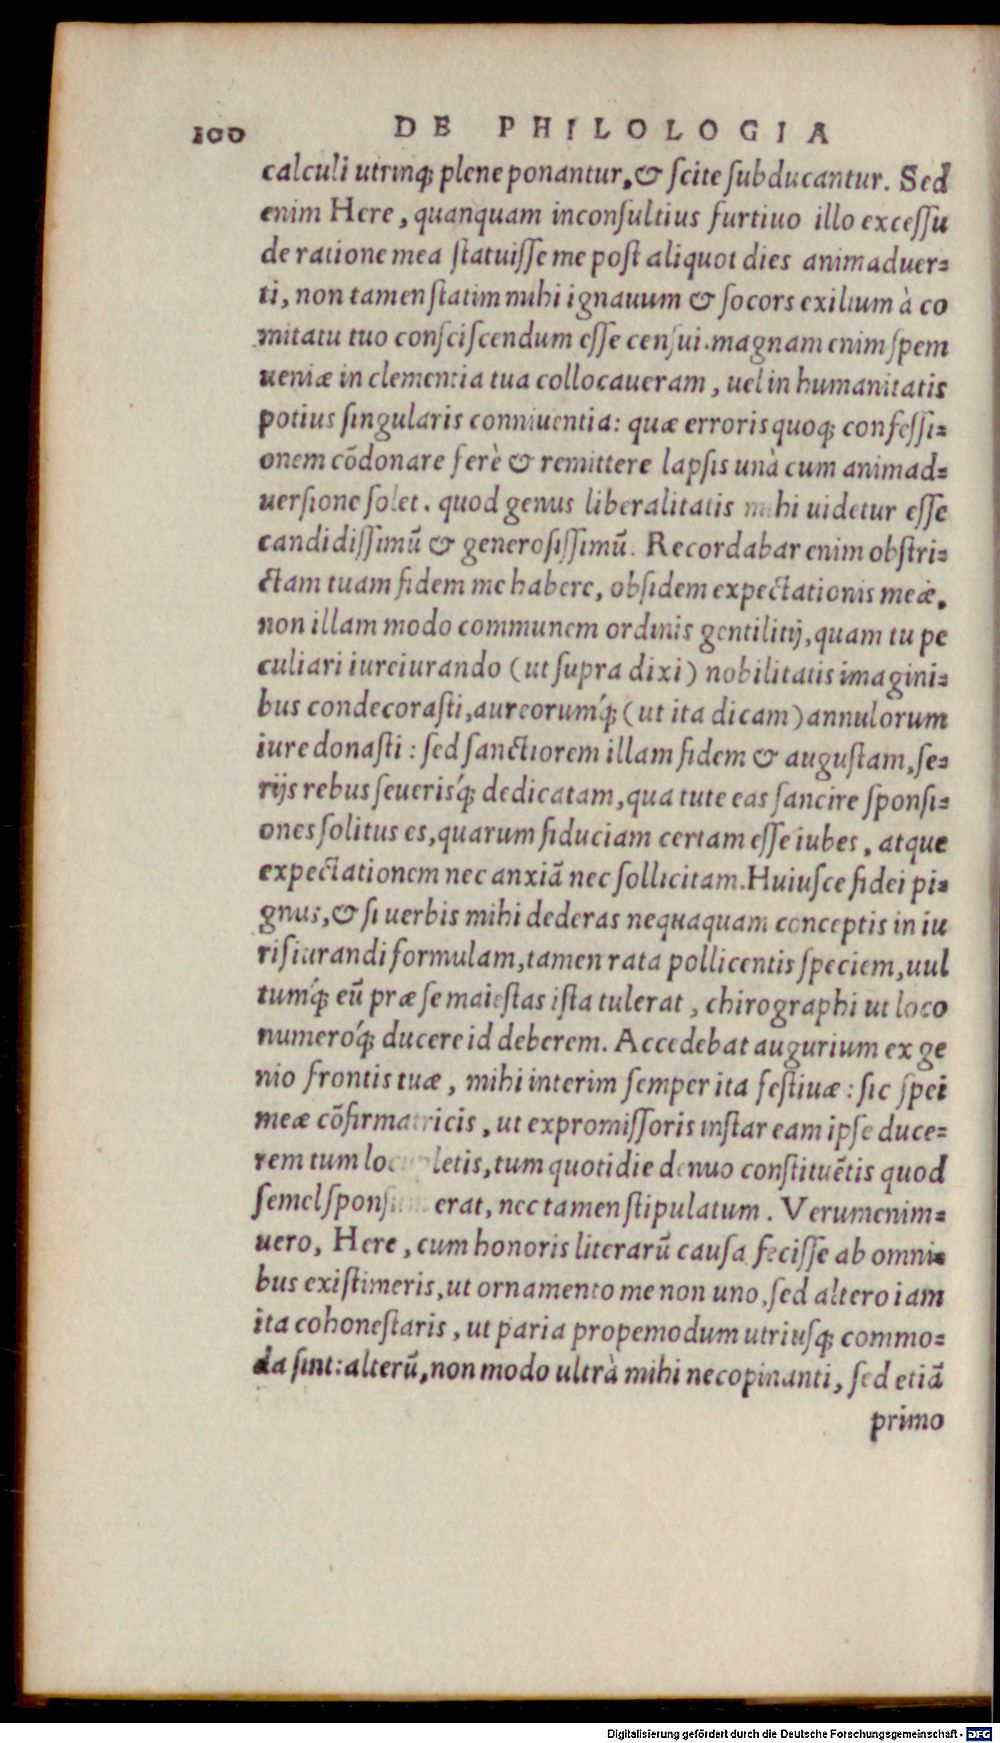 100 DE PHILOLOGIA
calculi utrinq; plene ponantur, & scite subducantur. Sed
enim Here, quanquam inconsultius furtiuo illo excessu
de ratione mea statuisse me post aliquot dies animaduer-
ti, non tamen statim mihi ignauum & socors exilium à co
mitatu tuo consciscendum esse censui. magnam enim spem
ueniæ in clementia tua collocaueram, uel in humanitatis
potius singularis conniuentia: quæ erroris quoq; confessi-
onem cōdonare ferè & remittere lapsis unà cum animad-
uersione solet. quod genus liberalitatis mihi uidetur esse
candidissimū & generosissimū. Recordabar enim obstri-
ctam tuam fidem me habere, obsidem expectationis meæ,
non illam modo communem ordinis gentilitij, quam tu pe
culiari iureiurando (ut supra dixi) nobilitatis imagini-
bus condecorasti, aureorumq́; (ut ita dicam) annulorum
iure donasti: sed sanctiorem illam fidem & augustam, se-
rijs rebus seuerisq́; dedicatam, qua tute eas sancire sponsi-
ones solitus es, quarum fiduciam certam esse iubes, atque
expectationem nec anxiā nec sollicitam. Huiusce fidei pi-
gnus, & si uerbis mihi dederas nequaquam conceptis in iu
risiurandi formulam, tamen rata pollicentis speciem, uul
tumq́; eū præ se maiestas ista tulerat, chirographi ut loco
numeroq́; ducere id deberem. Accedebat augurium ex ge
nio frontis tuæ, mihi interim semper ita festiuæ: sic spei
meæ cōfirmatricis, ut expromissoris instar eam ipse duce-
rem tum locupletis, tum quotidie denuo constituētis quod
semel erat, nec tamen stipulatum. Verumenim-
uero, Here, cum honoris literarū causa fecisse ab omni-
bus existimeris, ut ornamento me non uno, sed altero iam
ita cohonestaris, ut paria propemodum utriusq; commo-
da sint: alterū, non modo ultrà mihi necopinanti, sed etiā
primo
Digitalisierung gefördert durch die Deutsche Forschungsgemeinschaft - DFG